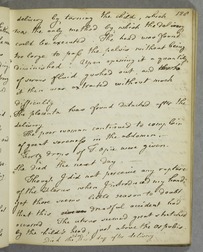 delivery by turning the child, which
was the only method by which the delivery
could be executed. The head was found
too large to pass the pelvis without being
diminished. Upon opening it a quantity
of serous fluid gushed out and
it then was extracted without much
difficulty.
The placenta was found detached after the
delivery.
The poor woman continued to complain
of great soreness in the abdomen
Forty drops of T. opii were given.
She died the next day.
Though I did not perceive any rupture
of the Uterus when I introduced my hand,
yet there seems little reason to doubt
that this dreadful accident had
The uterus seemed great stretched
by the child's head, just above the os pubis